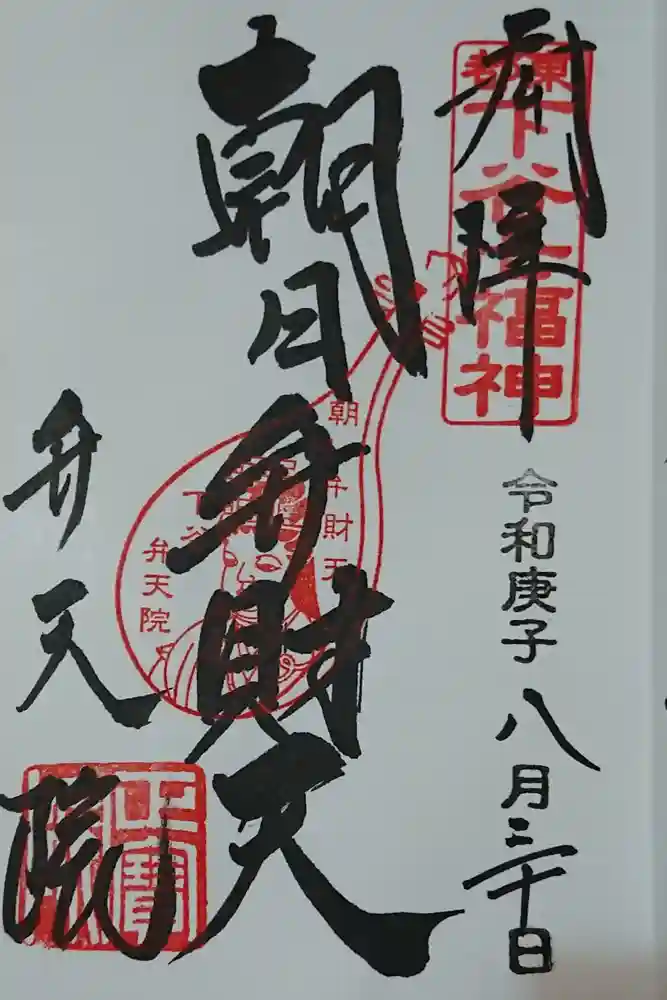 奉拝
東都
下谷七福神
令和庚子八月三十日
朝日弁財天
朝日弁財天
下谷
弁天院
弁天院